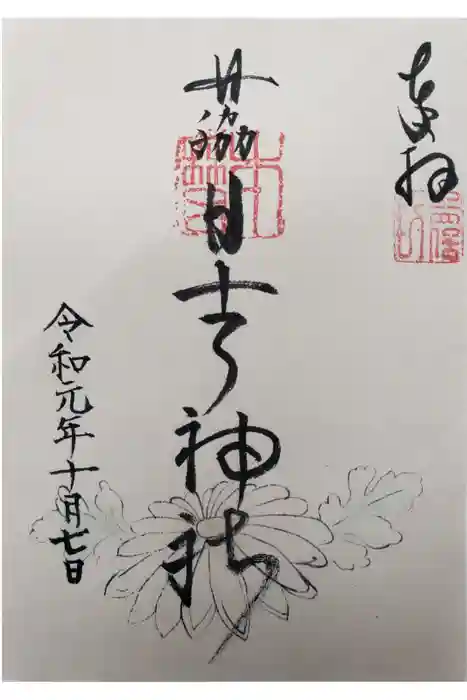 奉拝
日吉神社
令和元年十月七日